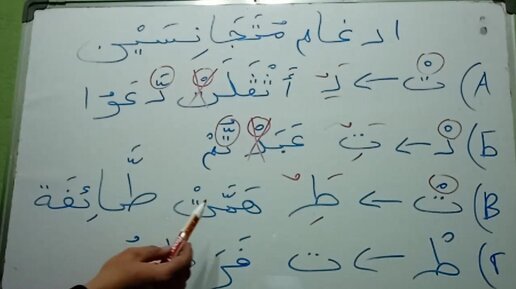 ادغام مُتَجَانِسَيْن
A) تْ ← دِ أَثْقَلَتْ دَّعَوُا
Б) دْ ← تِ عَبَدْتُّمْ
В) تْ ← طِ هَمَّتْ طَّائِفَة
Г) طْ ← ت